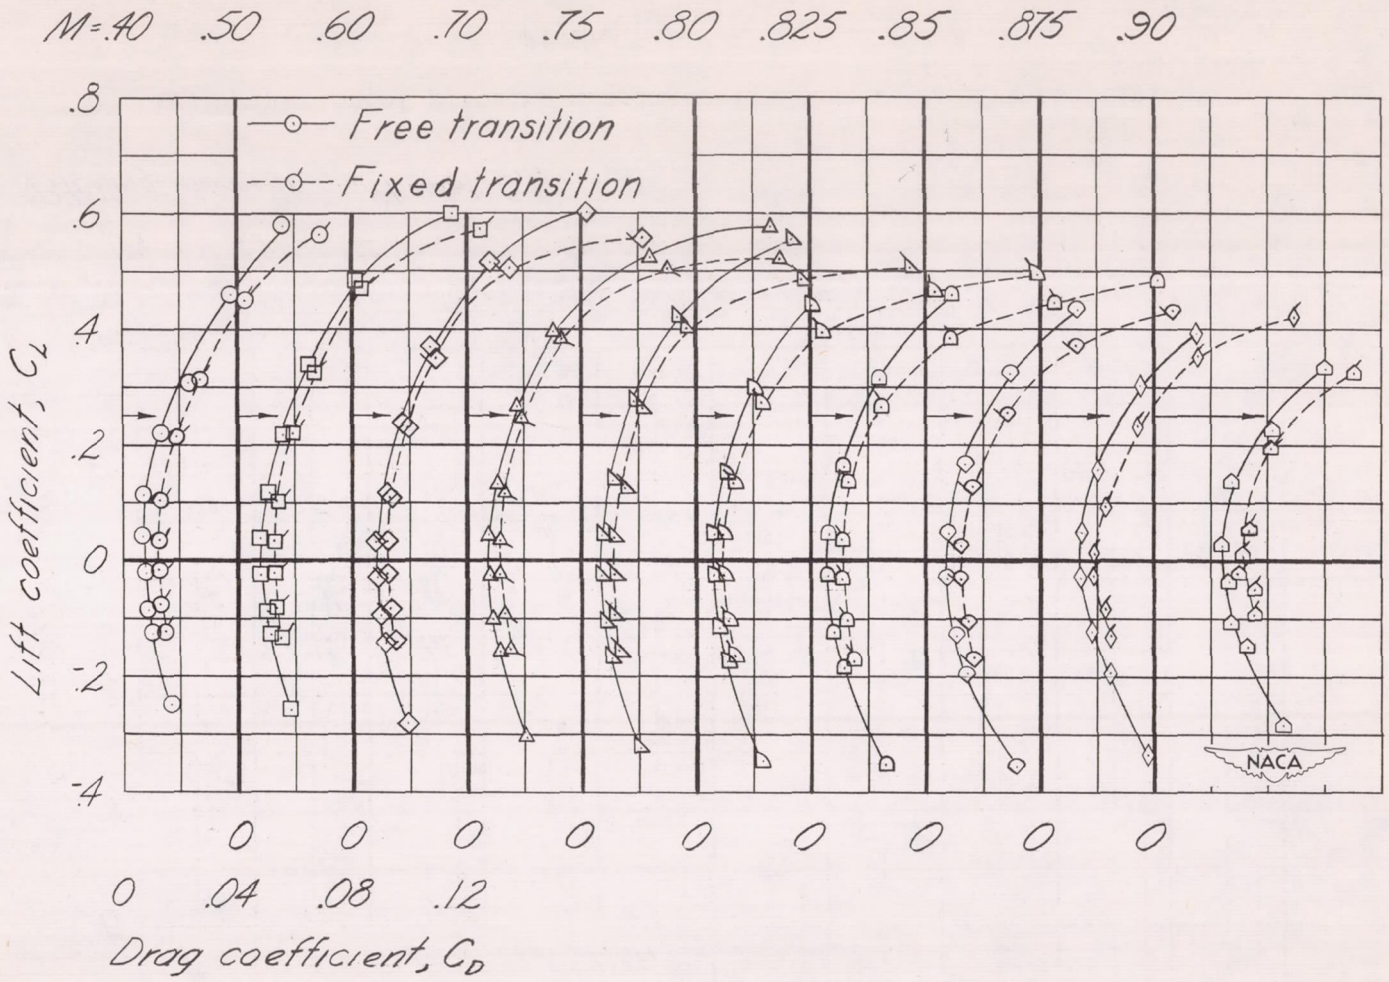 M=.40 .50 .60 .70 .75 .80 .825 .85 .875 .90
.8
Free transition
Fixed transition
.6
.4
.2
0
-.2
-.4
Lift coefficient, C_L
NACA
0 0 0 0 0 0 0 0 0
0 .04 .08 .12
Drag coefficient, C_D